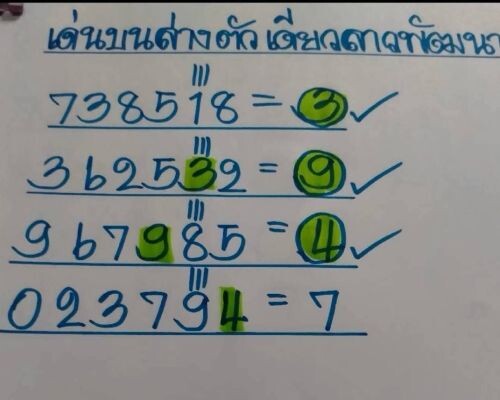 เด่นบนล่างตัวเดียวลาวพัฒนา
738518 = 3 ✓
362532 = 9 ✓
967985 = 4 ✓
023794 = 7